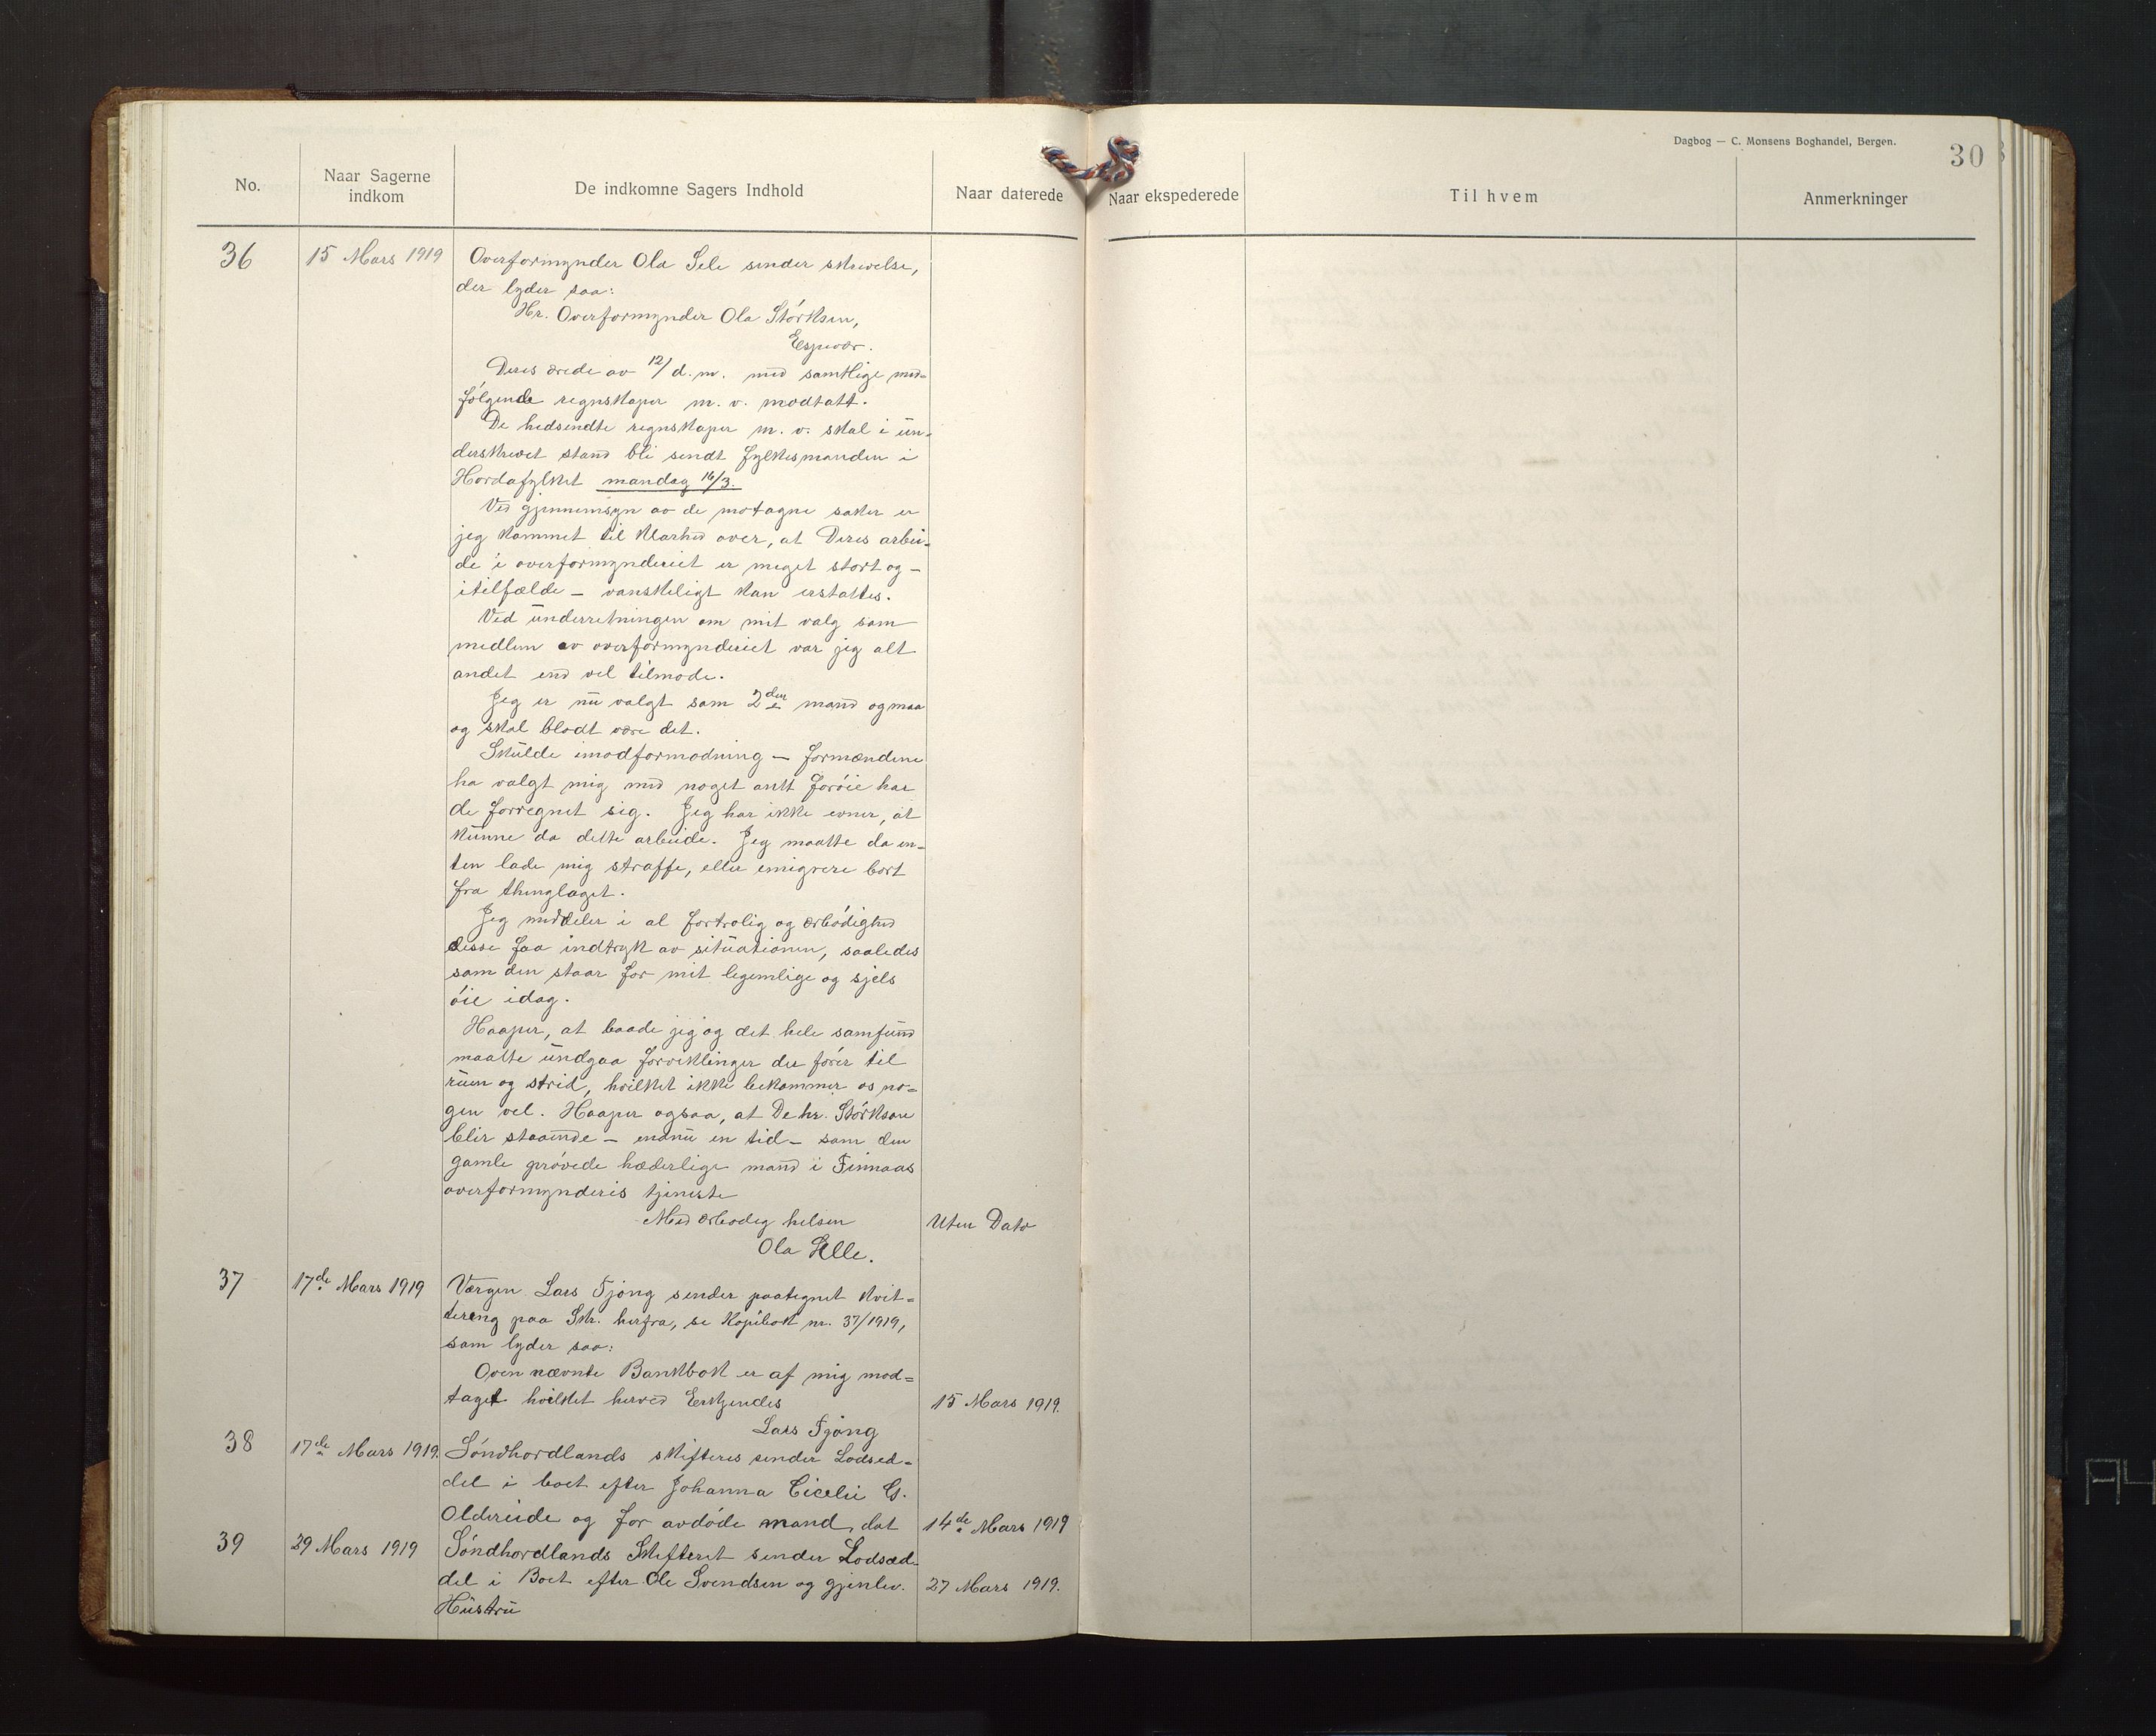 Dagbog — C. Monsens Boghandel, Bergen.
30
No.
Naar Sagerne indkom
De indkomne Sagers Indhold
Naar daterede
Naar ekspederede
Til hvem
Anmerkninger
36
15 Mars 1919
Overformynder Ola Sele sender skrivelse,
der lyder saa:
Hr. Overformynder Ola Størksen,
Espevær.
Deres ærede av 12/ d. m. med samtlige med=
følgende regnskaper m. v. modtatt.
De hedsendte regnskaper m. v. skal i un=
derskrevet stand bli sendt fylkesmanden i
Hordafylket mandag 16/3.
Ved gjennemsyn av de motagne saker er
jeg kommet til klarhed over, at Deres arbei=
de i overformynderiet er meget stort og –
itilfælde – vanskeligt kan erstattes.
Ved underretningen om mit valg som
medlem av overformynderiet var jeg alt
andet end vel tilmode.
Jeg er nu valgt som 2den mand og maa
og skal blodt være det.
Skulde imodformodning – formændene
ha valgt mig med noget antt forøie har
de forregnet sig. Jeg har ikke evner, at
kunne da dette arbeide. Jeg maatte da en=
ten lade mig straffe, eller emigrere bort
fra thinglaget.
Jeg meddeler i al fortrolig og ærbødighed
disse faa indtryk av situationen, saaledes
som den staar for mit legemlige og sjels
øie idag.
Haaper, at baade jeg og det hele samfund
maatte undgaa forviklinger der fører til
ruin og strid, hvilket ikke bekommer os no=
gen vel. Haaper ogsaa, at De hr. Størkson
blir staaende – endnu en tid – som den
gamle prøvede hæderlige mand i Finnaas
overformynderis tjeneste
Med ærbødig helsen
Uten Dato
Ola Selle.
37
17de Mars 1919
Værgen Lars Fjøng sender paategnet kvit=
tering paa Skr. herfra, se Kopibok nr. 37/1919,
som lyder saa:
Oven nævnte Bankbok er af mig mod=
taget hvilket herved Erkjendes
15 Mars 1919.
Lars Fjøng
38
17de Mars 1919.
Søndhordlands skifteres sender Lodsed=
del i boet efter Johanna Cicelie G.
Oldereide og før avdøde mand, dat
14de Mars 1919
39
29 Mars 1919
Søndhordlands Skifteret sender Lodsæd=
del i Boet efter Ole Svendsen og gjenlev.
27 Mars 1919.
Hustru